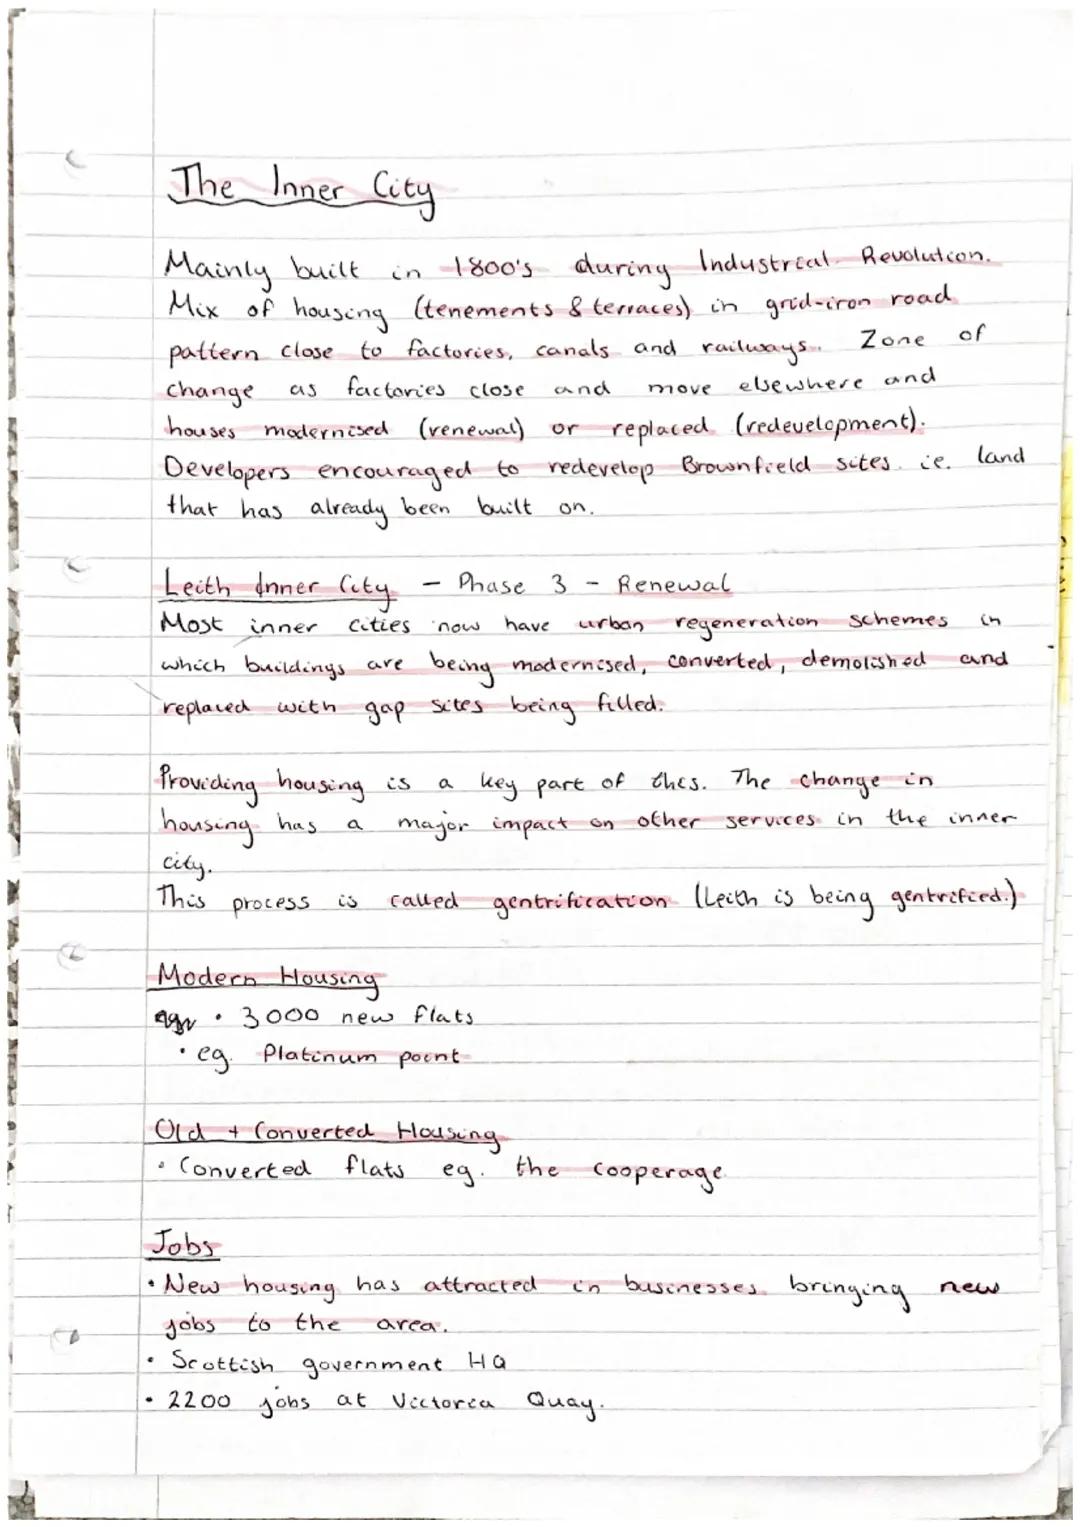 The Inner City
Mainly built in 1800's during Industrial Revolution.
Mix of housing (tenements & terraces) in grid-iron road
pattern close to factories, canals and railways. Zone of
change as factories close and move elsewhere and
houses modernised (renewal) or replaced (redevelopment).
Developers encouraged to redevelop Brownfield sites ie. land
that has already been built on.
Leith Inner City - Phase 3 - Renewal
Most inner cities now have urban regeneration schemes in
which buildings are being modernised, converted, demolished and
replaced with gap sites being filled.
Providing housing is a key part of this. The change in
housing has a major impact on other services in the inner
city.
This process is called gentrification (Leith is being gentrified.)
Modern Housing
• 3000 new flats
• eg. Platinum point
Old + Converted Housing
• Converted flats eg. the cooperage
Jobs
• New housing has attracted in businesses bringing new
jobs to the area.
• Scottish government HQ
• 2200 jobs at Victoria Quay.